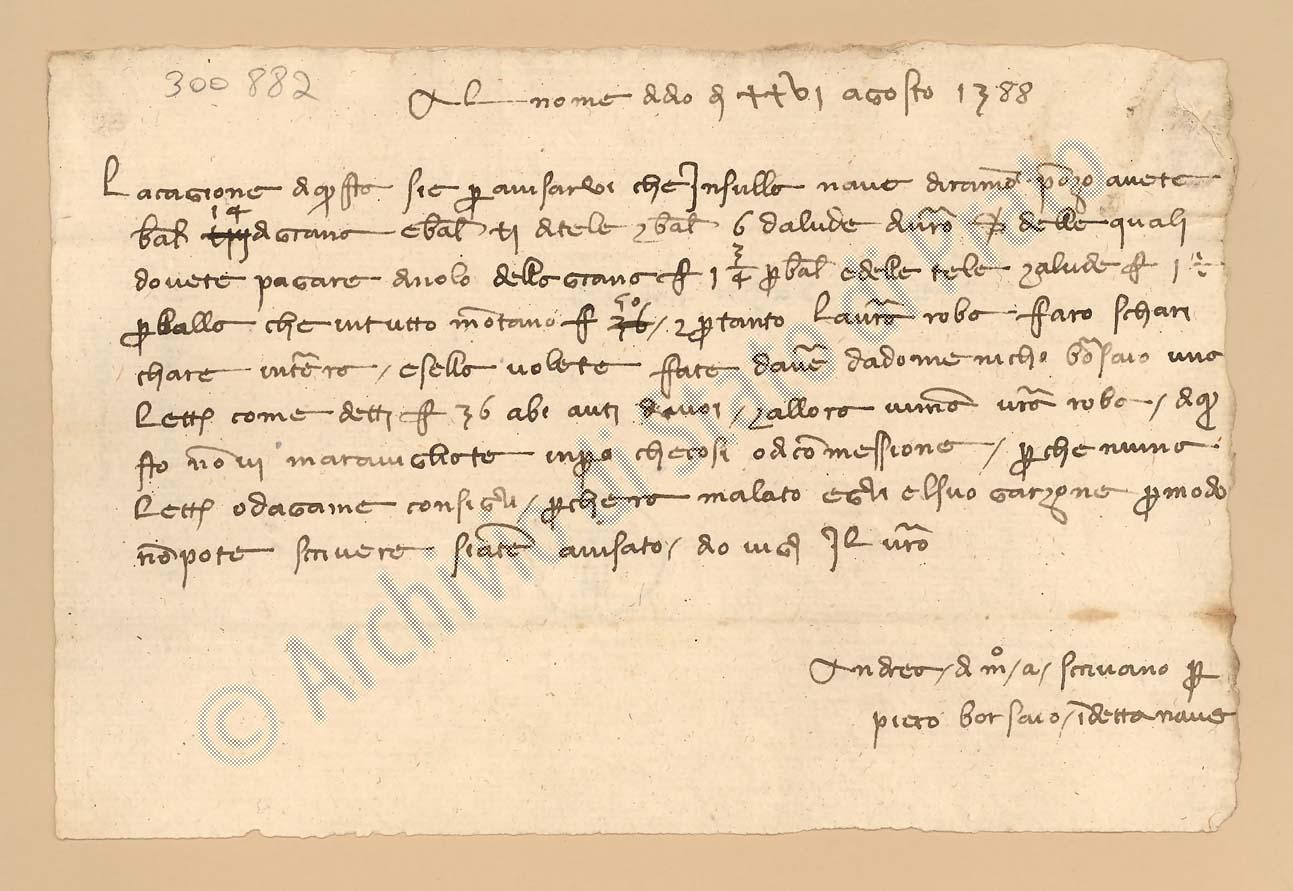 300 882
Al nome d dio d xxvi agosto 1388
La cagione di qsto sie p avisarvi che Insulla nave diramo ponzo avete
bal 14 di grana e bal xi di tele e bal 6 dalude di vro delle quali
dovete pagare di nolo della grana f 1 3/4 p bal e delle tele e alude f 1
p balla che in tutto motano f e p tanto la vra roba faro schari
chare e sella volete fate dave da domenicho bosaio una
lett come detti f 36 abi auti da voi / e allora vra roba / di q
sto no vi maravigliate che cosi o di comessione / p che niuna
lett o da game consigli / p chera malato egli el suo garzone p modo
no pote scrivere siate avisato / dio vi gdi Il vro
Andrea / di mo / a / scrivano p
piero borsaio / i detta nave
© Archivio di Stato di Prato